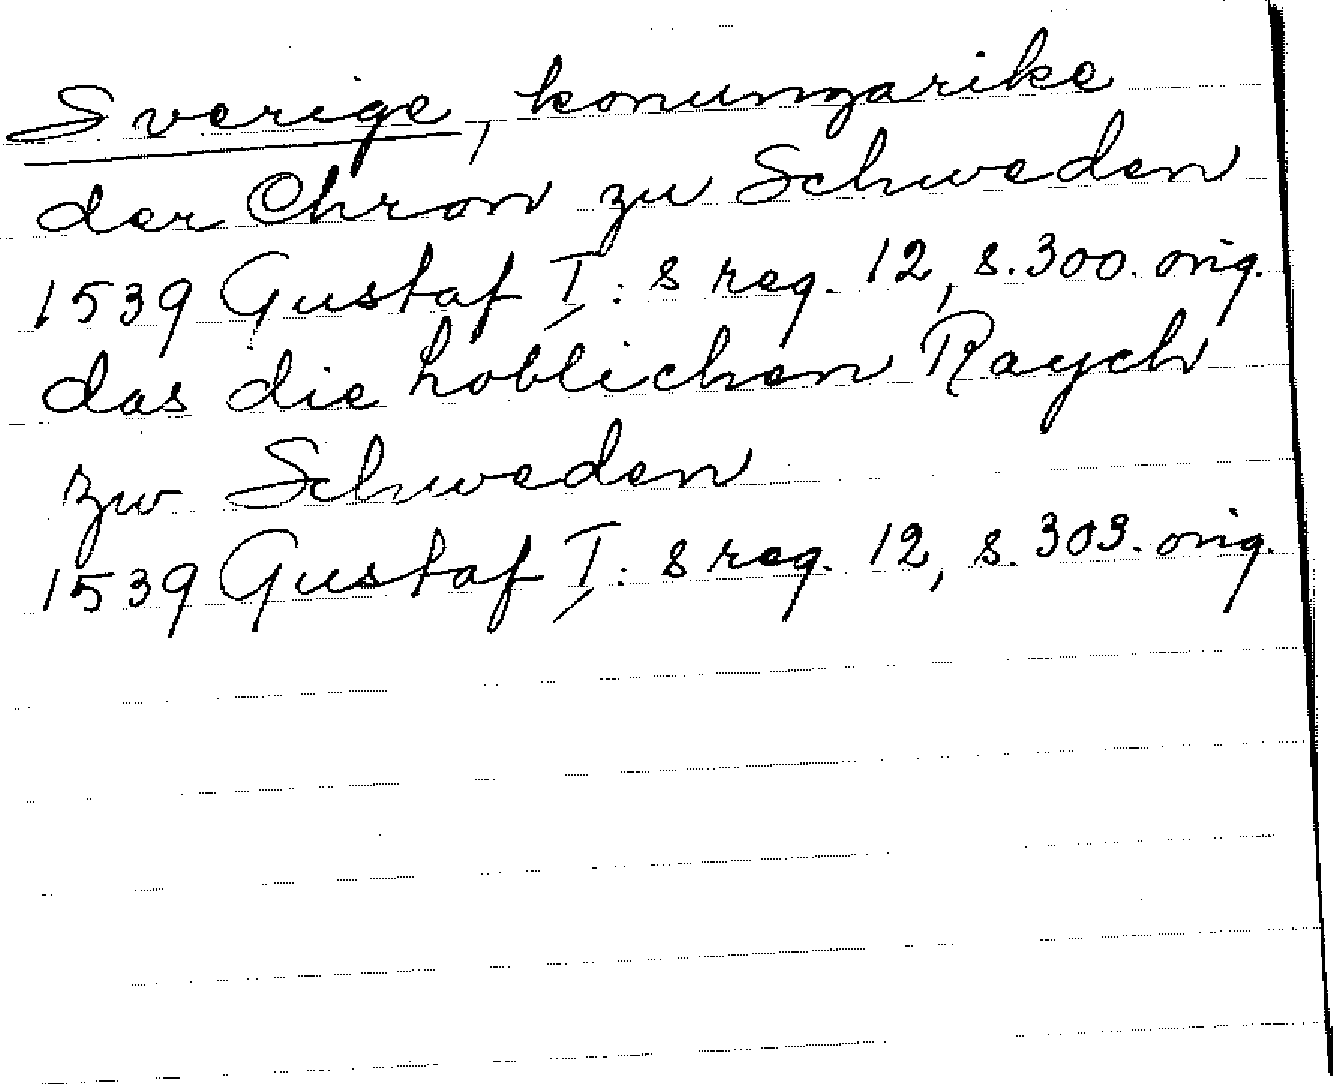 Sverige, konungarike
der Chron zu Schweden
1539 Gustaf I:s reg. 12, s. 300. orig.
das die hoblichen Raych
zw Schweden
1539 Gustaf I:s reg. 12, s. 303. orig.